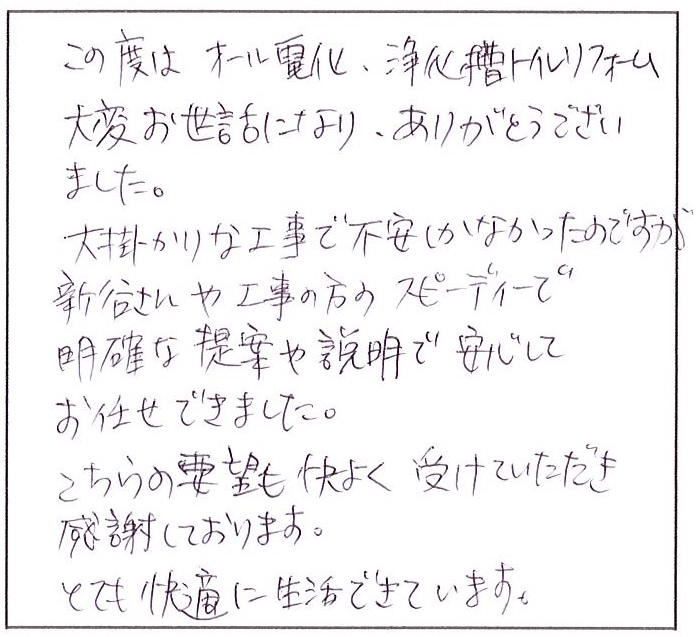 この度は オール電化、浄化槽トイレリフォーム
大変お世話になり、ありがとうござい
ました。
大掛かりな工事で不安しかなかったのですが
新谷さんや工事の方の スピーディーで
明確な提案や説明で 安心して
お任せできました。
こちらの要望も快よく 受けていただき
感謝しております。
とても快適に生活できています。